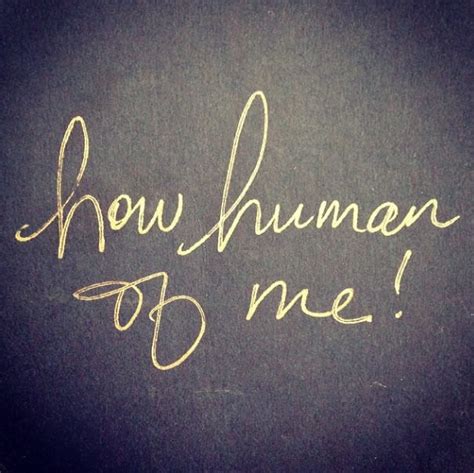 how human
of me!